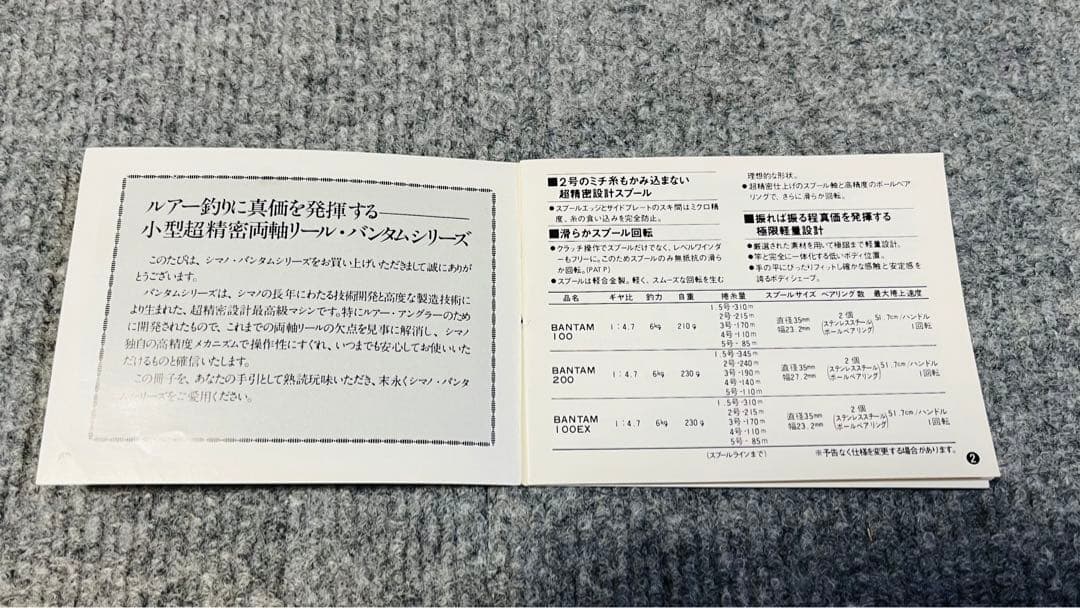 ルアー釣りに真価を発揮する――――
小型超精密両軸リール・バンタムシリーズ
このたびは、シマノ・バンタムシリーズをお買い上げいただきまして誠にありが
とうございます。
バンタムシリーズは、シマノの長年にわたる技術開発と高度な製造技術に
より生まれた、超精密設計最高級マシンです。特にルアー・アングラーのため
に開発されたもので、これまでの両軸リールの欠点を見事に解消し、シマノ
独自の高精度メカニズムで操作性にすぐれ、いつまでも安心してお使いいた
だけるものと確信いたします。
この冊子を、あなたの手引として熟読玩味いただき、末永くシマノ・バンタ
ムシリーズをご愛用ください。
■2号のミチ糸もかみ込まない
超精密設計スプール
●スプールエッジとサイドプレートのスキ間はミクロ精
度、糸の食い込みを完全防止。
■滑らかスプール回転
●クラッチ操作でスプールだけでなく、レベルワインダ
ーもフリーに。このためスプールのみ無抵抗の滑ら
か回転。(PAT P)
●スプールは軽合金製。軽く、スムーズな回転を生む
理想的な形状。
●超精密仕上げのスプール軸と高精度のボールベア
リングで、さらに滑らか回転。
■振れば振る程真価を発揮する
極限軽量設計
●厳選された素材を用いて極限まで軽量設計。
●竿と完全に一体化する低いボディ位置。
●手の平にぴったりフィットし確かな感触と安定感を
誇るボディシェープ。
品名 ギヤ比 釣力 自重 捲糸量 スプールサイズ ベアリング数 最大捲上速度
BANTAM 100 1:4.7 6kg 210g 1.5号-310m 2号-215m 3号-170m 4号-110m 5号-85m 直径35mm 幅23.2mm 2個 (ステンレススチールボールベアリング) 51.7cm/ハンドル1回転
BANTAM 200 1:4.7 6kg 230g 1.5号-345m 2号-240m 3号-190m 4号-140m 5号-110m 直径35mm 幅27.2mm 2個 (ステンレススチールボールベアリング) 51.7cm/ハンドル1回転
BANTAM 100EX 1:4.7 6kg 230g 1.5号-310m 2号-215m 3号-170m 4号-110m 5号-85m 直径35mm 幅23.2mm 2個 (ステンレススチールボールベアリング) 51.7cm/ハンドル1回転
(スプールラインまで) ※予告なく仕様を変更する場合があります。
2